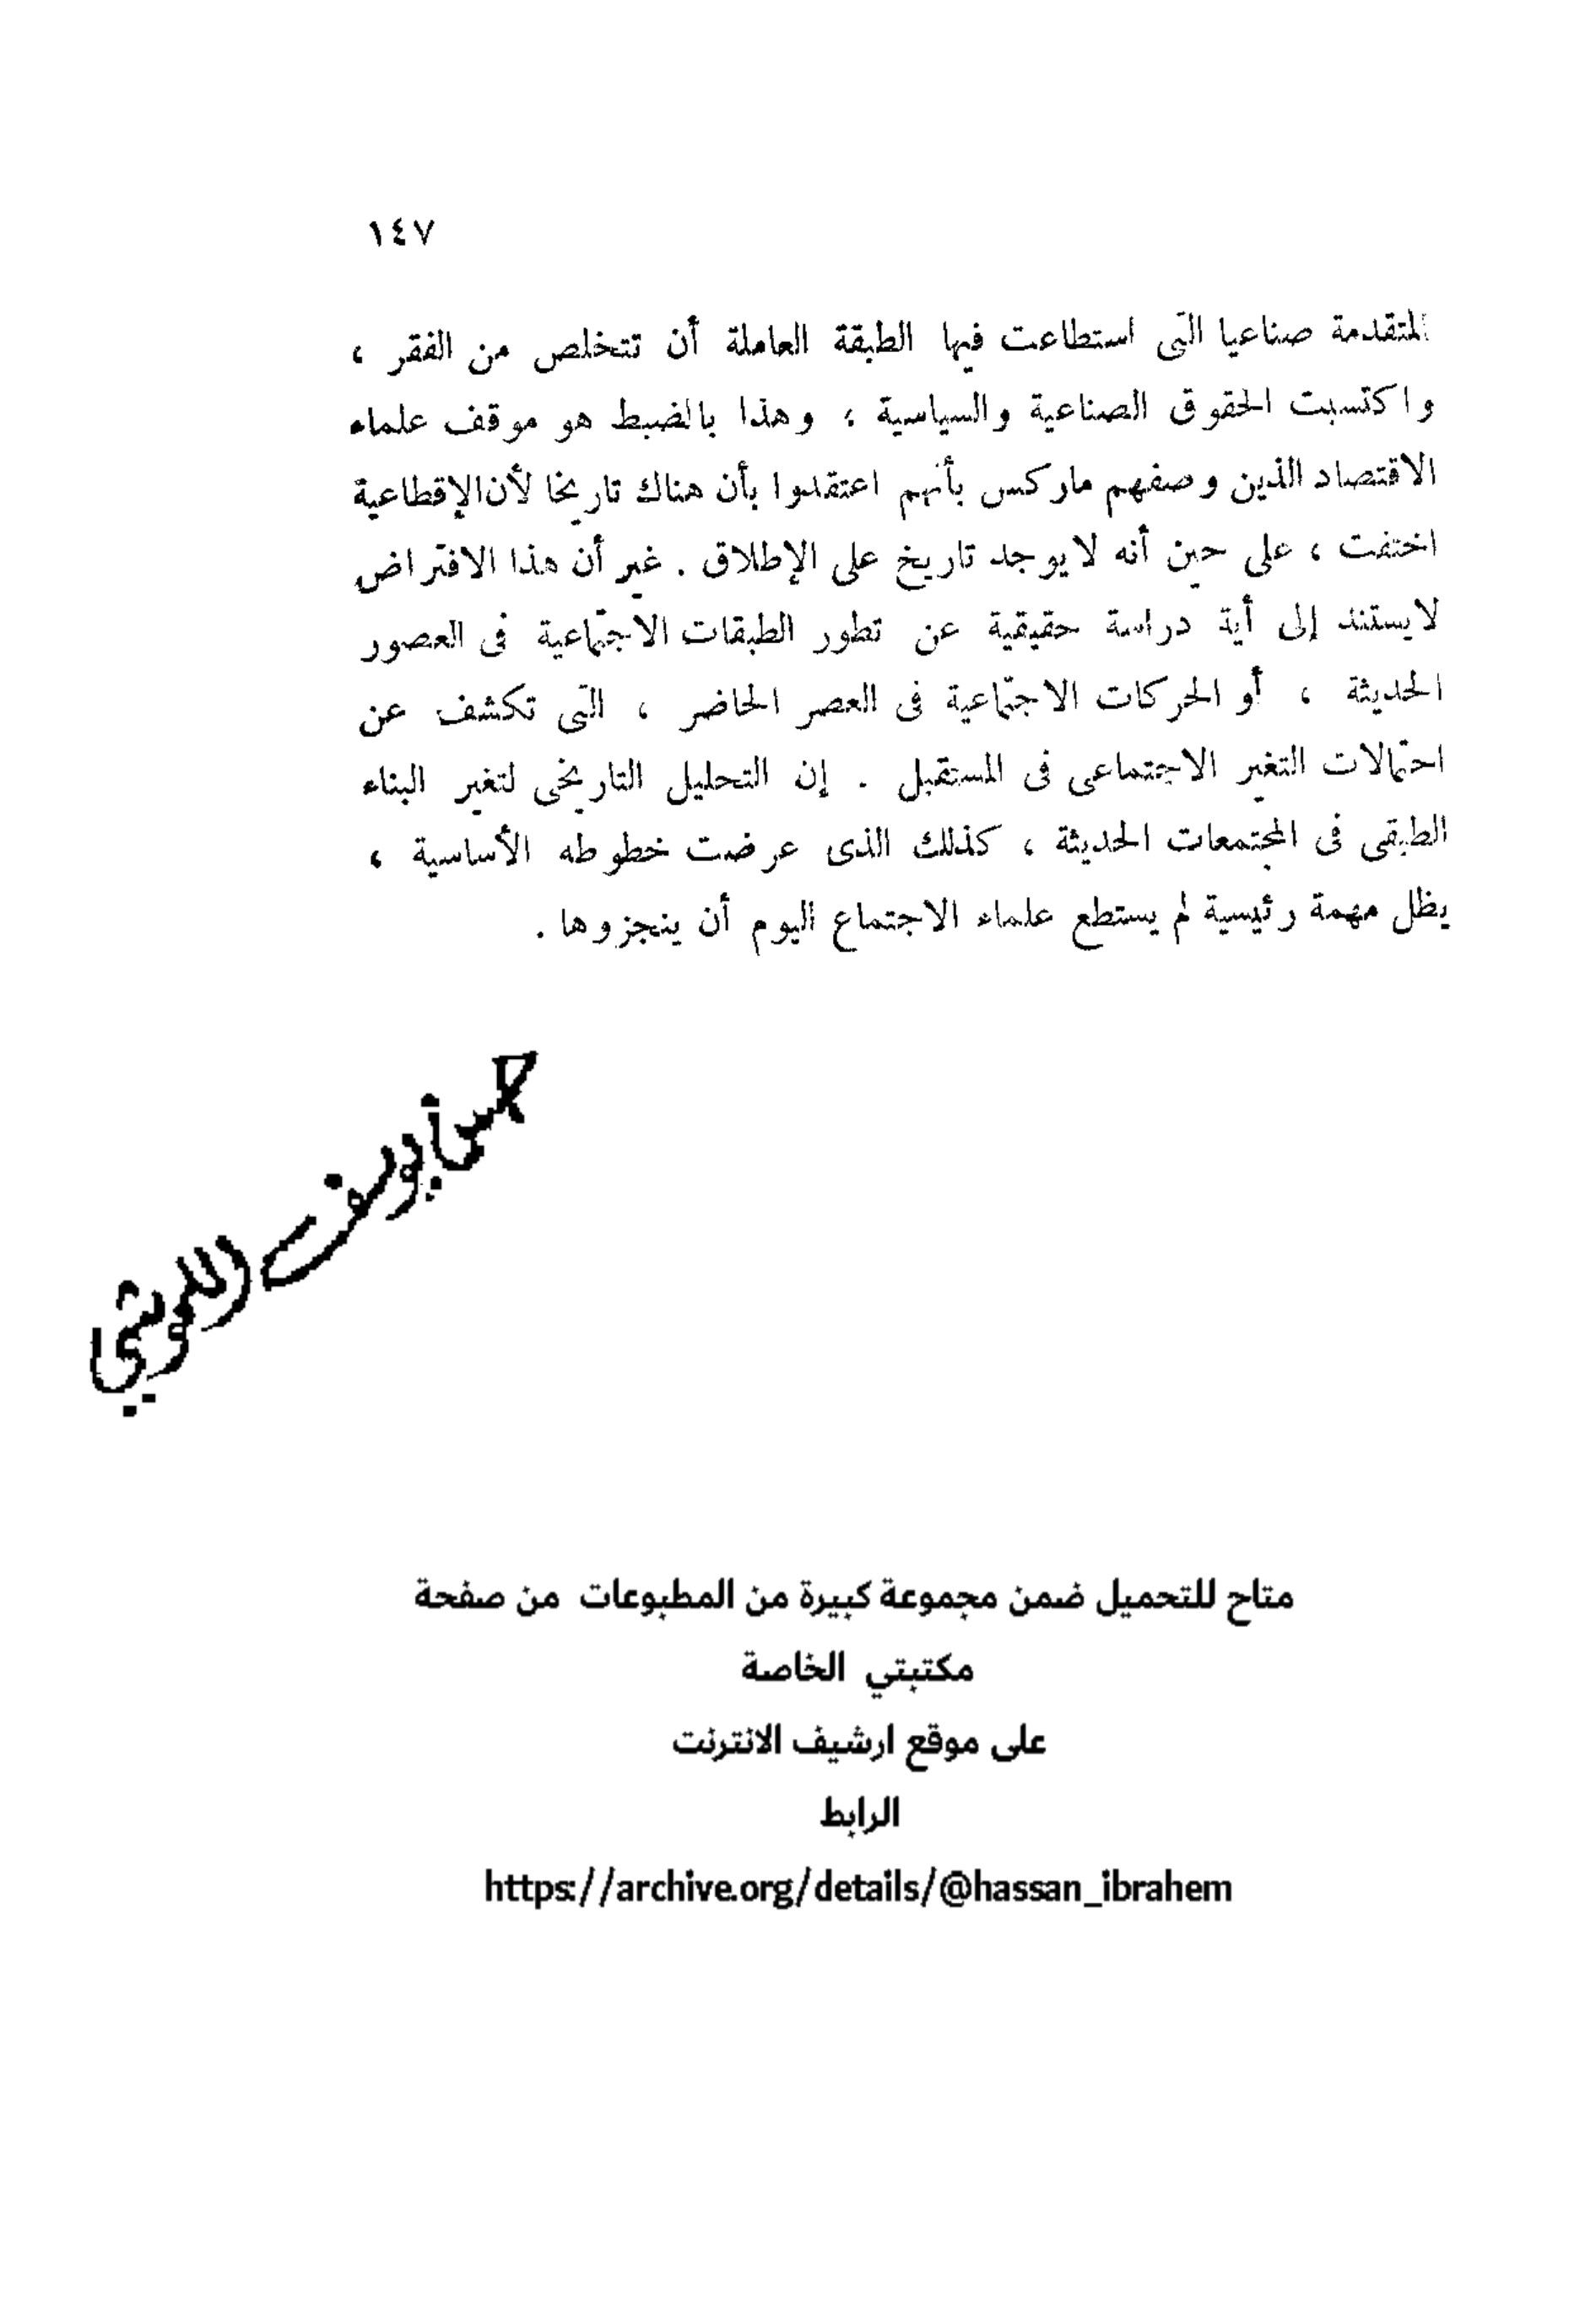 ١٤٧
المتقدمة صناعيا التى استطاعت فيها الطبقة العاملة أن تتخلص من الفقر ،
واكتسبت الحقوق الصناعية والسياسية ؛ وهذا بالضبط هو موقف علماء
الاقتصاد الذين وصفهم ماركس بأنهم اعتقدوا بأن هناك تاريخا لأن الإقطاعية
اختفت ، على حين أنه لا يوجد تاريخ على الإطلاق . غير أن هذا الافتراض
لا يستند إلى أية دراسة حقيقية عن تطور الطبقات الاجتماعية فى العصور
الحديثة ، أو الحركات الاجتماعية فى العصر الحاضر ، التى تكشف عن
احتمالات التغير الاجتماعى فى المستقبل . إن التحليل التاريخى لتغير البناء
الطبقى فى المجتمعات الحديثة ، كذلك الذى عرضت خطوطه الأساسية ،
يظل مهمة رئيسية لم يستطع علماء الاجتماع اليوم أن ينجزوها .
يوسف
متاح للتحميل ضمن مجموعة كبيرة من المطبوعات من صفحة
مكتبتي الخاصة
على موقع ارشيف الانترنت
الرابط
https://archive.org/details/@hassan_ibrahem